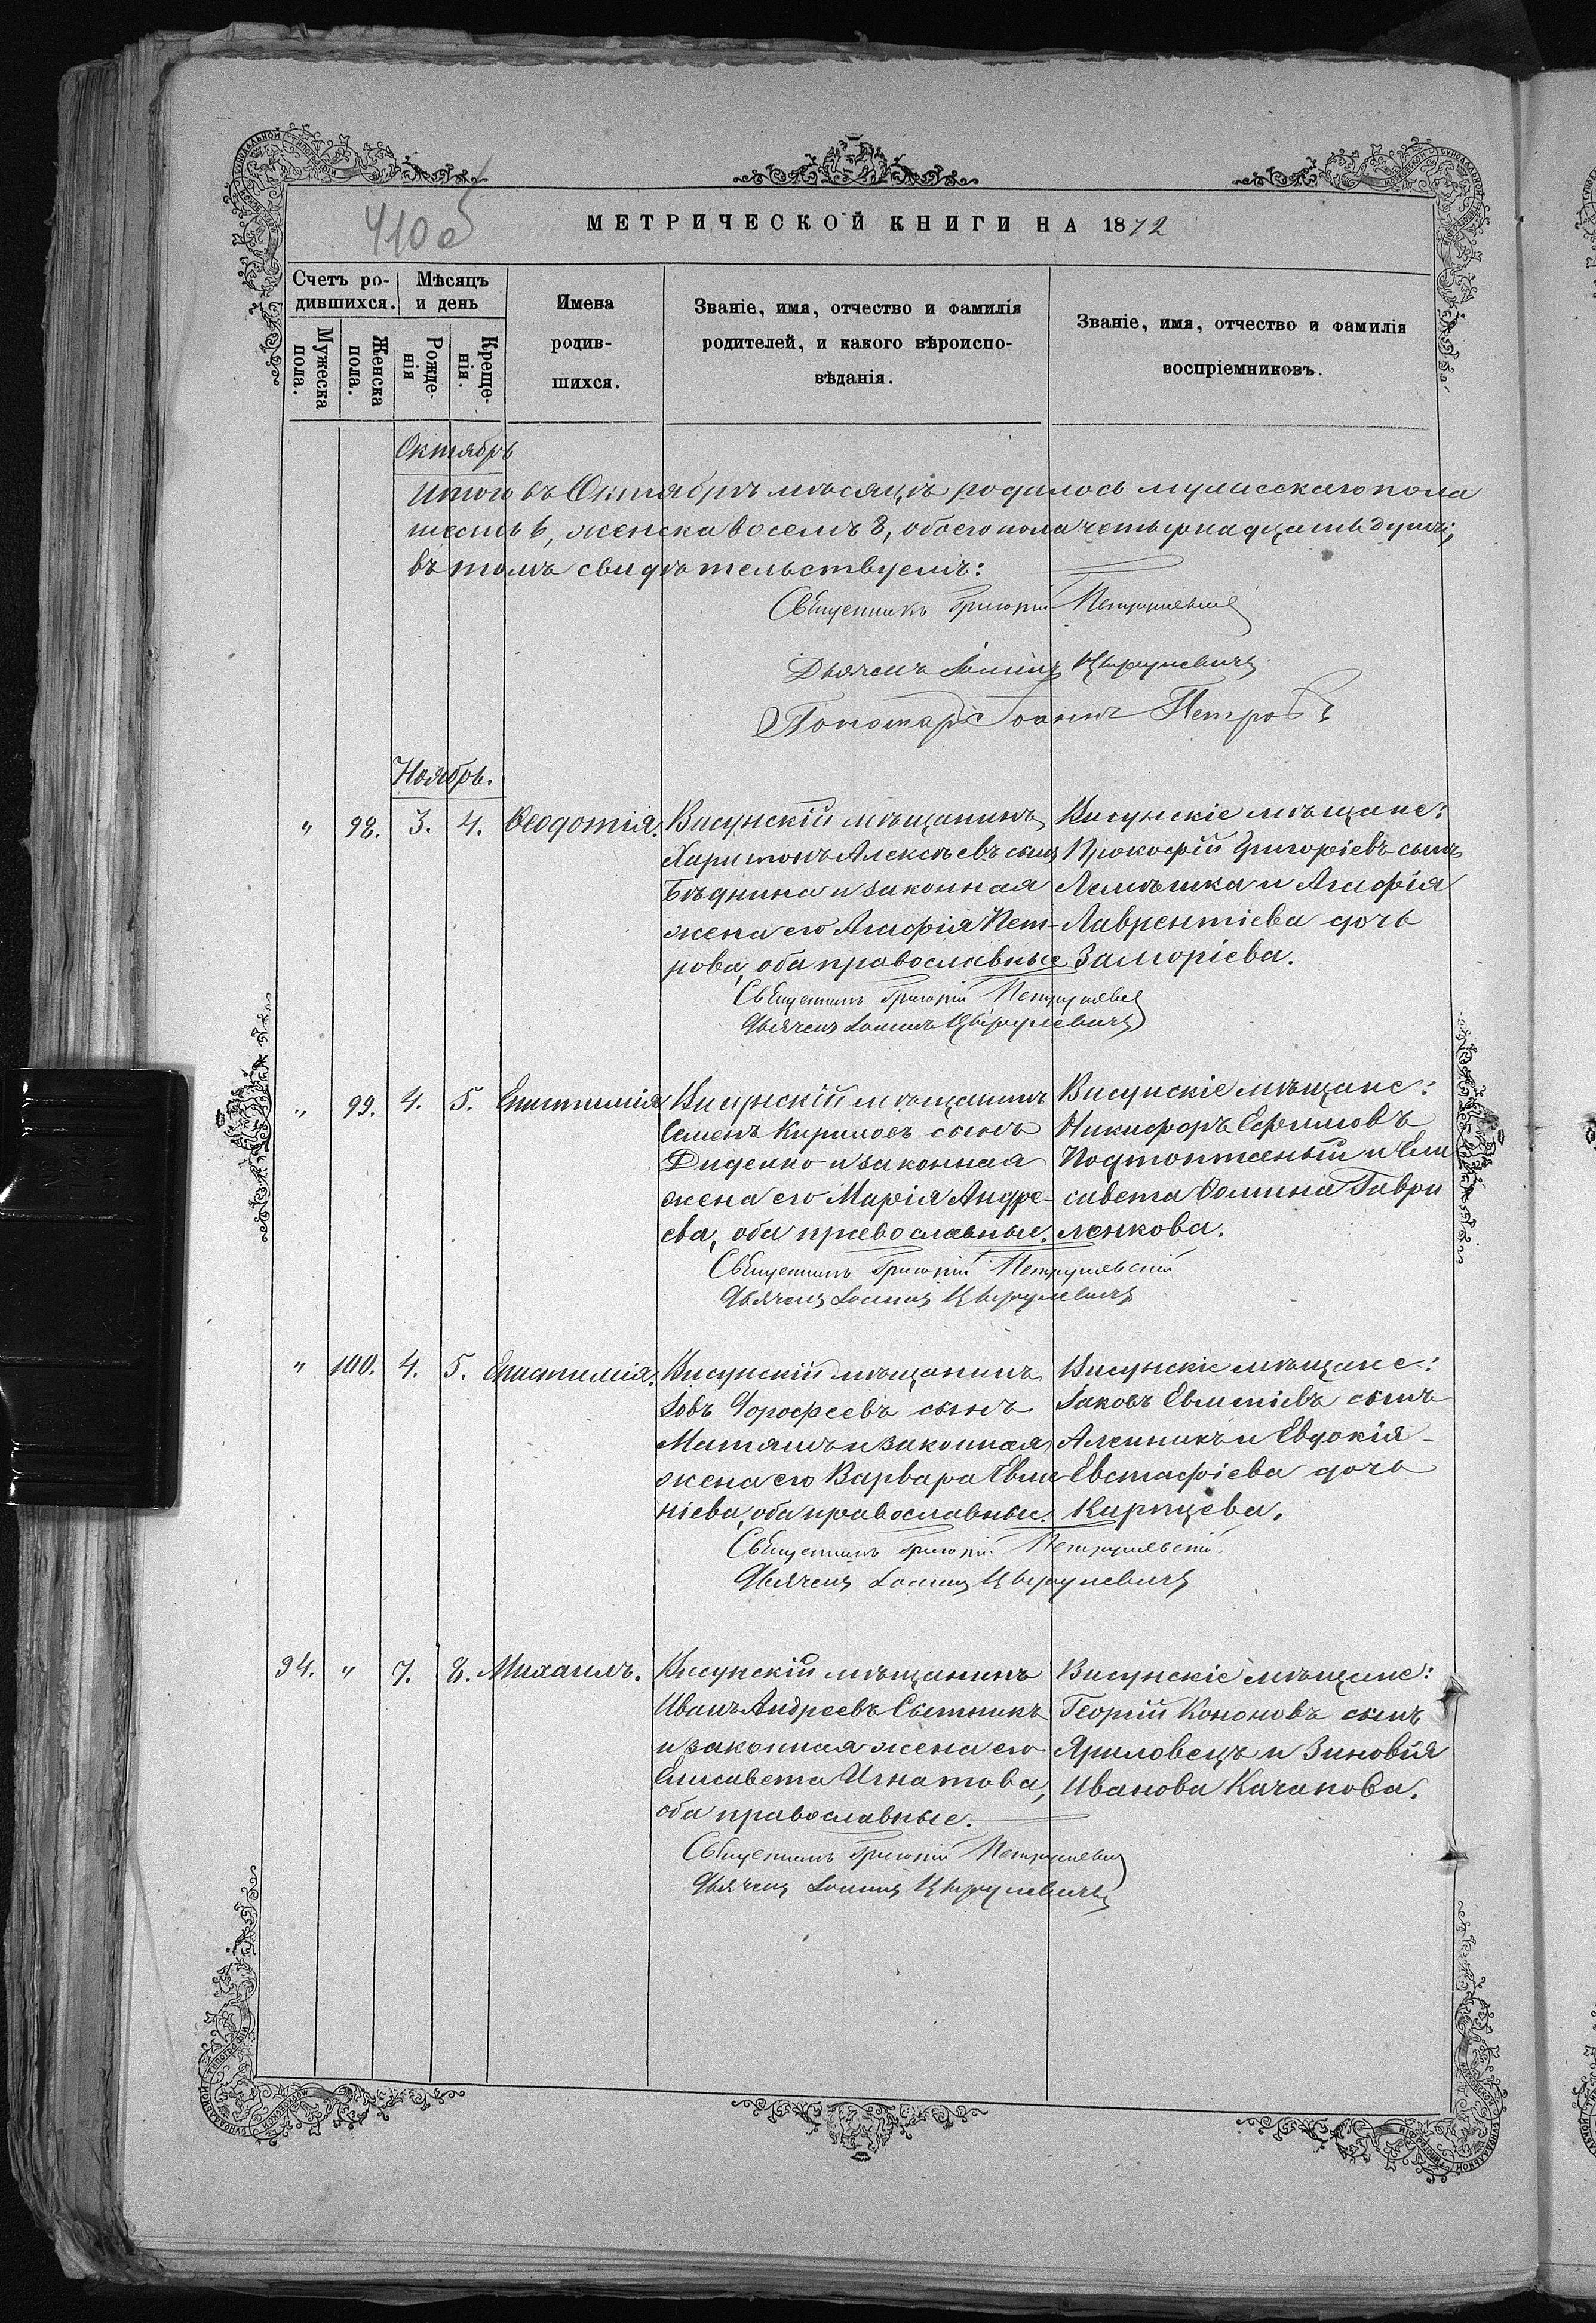 410 об
МЕТРИЧЕСКОЙ КНИГИ НА 1872
Счетъ ро-
дившихся.
Мужеска
пола.
Женска
пола.
Мѣсяцъ
и день
Рожде-
нія
Креще-
нія.
Имена
родив-
шихся.
Званіе, имя, отчество и фамилія
родителей, и какого вѣроиспо-
вѣданія.
Званіе, имя, отчество и фамилія
воспріемниковъ.
Октябрь
Итого въ Октябрѣ мѣсяцѣ родилось мужескаго пола
шесть 6, женска восемь 8, обоего пола четырнадцать душъ;
въ томъ свидѣтельствуемъ:
Священникъ Григорій
Дьячекъ Іоаннъ
Пономарь Іоаннъ Петровъ
Ноябрь.
" 98. 3. 4. Ѳеодотія.
Висунскій мѣщанинъ
Харитонъ Алексѣевъ сынъ
Бѣднина и законная
жена его Агафія Пет-
рова, оба православные
Висунскіе мѣщане:
Прокофій Григоріевъ сынъ
и Агафія
Лаврентіева дочь
Замгоріева.
Священникъ Григорій
Дьячекъ Іоаннъ
" 99. 4. 5. Епистимія
Висунскій мѣщанинъ
Семенъ Кириловъ сынъ
Диденко и законная
жена его Марія Андре-
ева, оба православные.
Висунскіе мѣщане:
Никифоръ Ефимовъ
и Ели
савета Фомина Гаври
ленкова.
Священникъ Григорій
Дьячекъ Іоаннъ
" 100. 4. 5. Епистимія.
Висунскій мѣщанинъ
Іовъ Дорофеевъ сынъ
Матяшъ и законная
жена его Варвара Евме
ніева, оба православные.
Висунскіе мѣщане:
Іаковъ сынъ
Алейникъ и Евдокія
Евстафіева дочь
Карпцева.
Священникъ Григорій
Дьячекъ Іоаннъ
94. " 7. 8. Михаилъ.
Висунскій мѣщанинъ
Иванъ Андреевъ Сытникъ
и законная жена его
Елисавета Игнатова,
оба православные.
Висунскіе мѣщане:
Георгій Кононовъ сынъ
Яриловецъ и Зиновія
Иванова Качанова.
Священникъ Григорій
Дьячекъ Іоаннъ